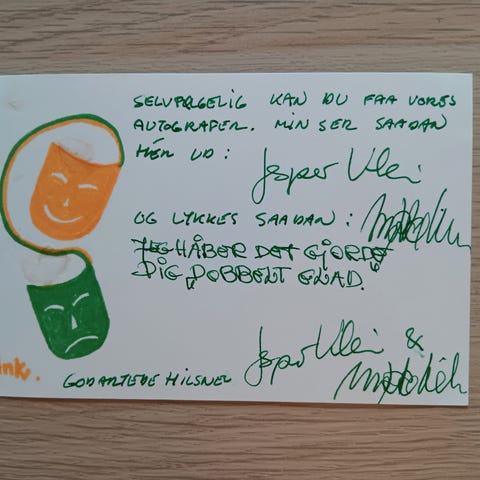 SELVFØLGELIG KAN DU FAA VORES
AUTOGRAFER. MIN SER SAADAN
HER UD: Jesper Klein
OG LYKKES SAADAN:
JEG HÅBER DET GJORDE
DIG DOBBELT GLAD.
Jesper Klein &
GODARTEDE HILSNER
ink.